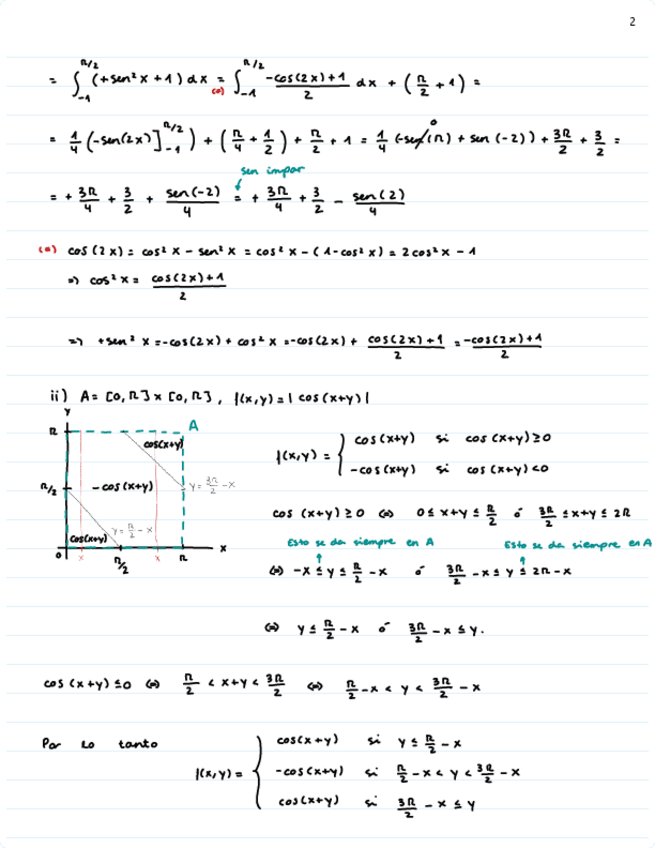 2
= ∫_{-1}^{π/2} (+sen²x + 1) dx =(*) ∫_{-1}^{π/2} (-cos(2x)+1)/2 dx + (π/2 + 1) =
= 1/4 (-sen(2x)]_{-1}^{π/2}) + (π/4 + 1/2) + π/2 + 1 = 1/4 (-sen(π) + sen(-2)) + 3π/4 + 3/2 =
0
sen impar
= + 3π/4 + 3/2 + sen(-2)/4 = + 3π/4 + 3/2 - sen(2)/4
(*) cos(2x) = cos²x - sen²x = cos²x - (1-cos²x) = 2cos²x - 1
=> cos²x = (cos(2x)+1)/2
=> +sen²x = -cos(2x) + cos²x = -cos(2x) + (cos(2x)+1)/2 = (-cos(2x)+1)/2
ii) A = [0,π] x [0,π], f(x,y) = |cos(x+y)|
y
π
A
cos(x+y)
π/2
-cos(x+y)
y = 3π/2 - x
y = π/2 - x
cos(x+y)
0
x
π/2
x
π
x
f(x,y) = { cos(x+y) si cos(x+y) ≥ 0
-cos(x+y) si cos(x+y) < 0
cos(x+y) ≥ 0 <=> 0 ≤ x+y ≤ π/2 ó 3π/2 ≤ x+y ≤ 2π
Esto se da siempre en A
Esto se da siempre en A
<=> -x ≤ y ≤ π/2 - x ó 3π/2 - x ≤ y ≤ 2π - x
<=> y ≤ π/2 - x ó 3π/2 - x ≤ y.
cos(x+y) ≤ 0 <=> π/2 < x+y < 3π/2 <=> π/2 - x < y < 3π/2 - x
Por lo tanto
f(x,y) = { cos(x+y) si y ≤ π/2 - x
-cos(x+y) si π/2 - x < y < 3π/2 - x
cos(x+y) si 3π/2 - x ≤ y